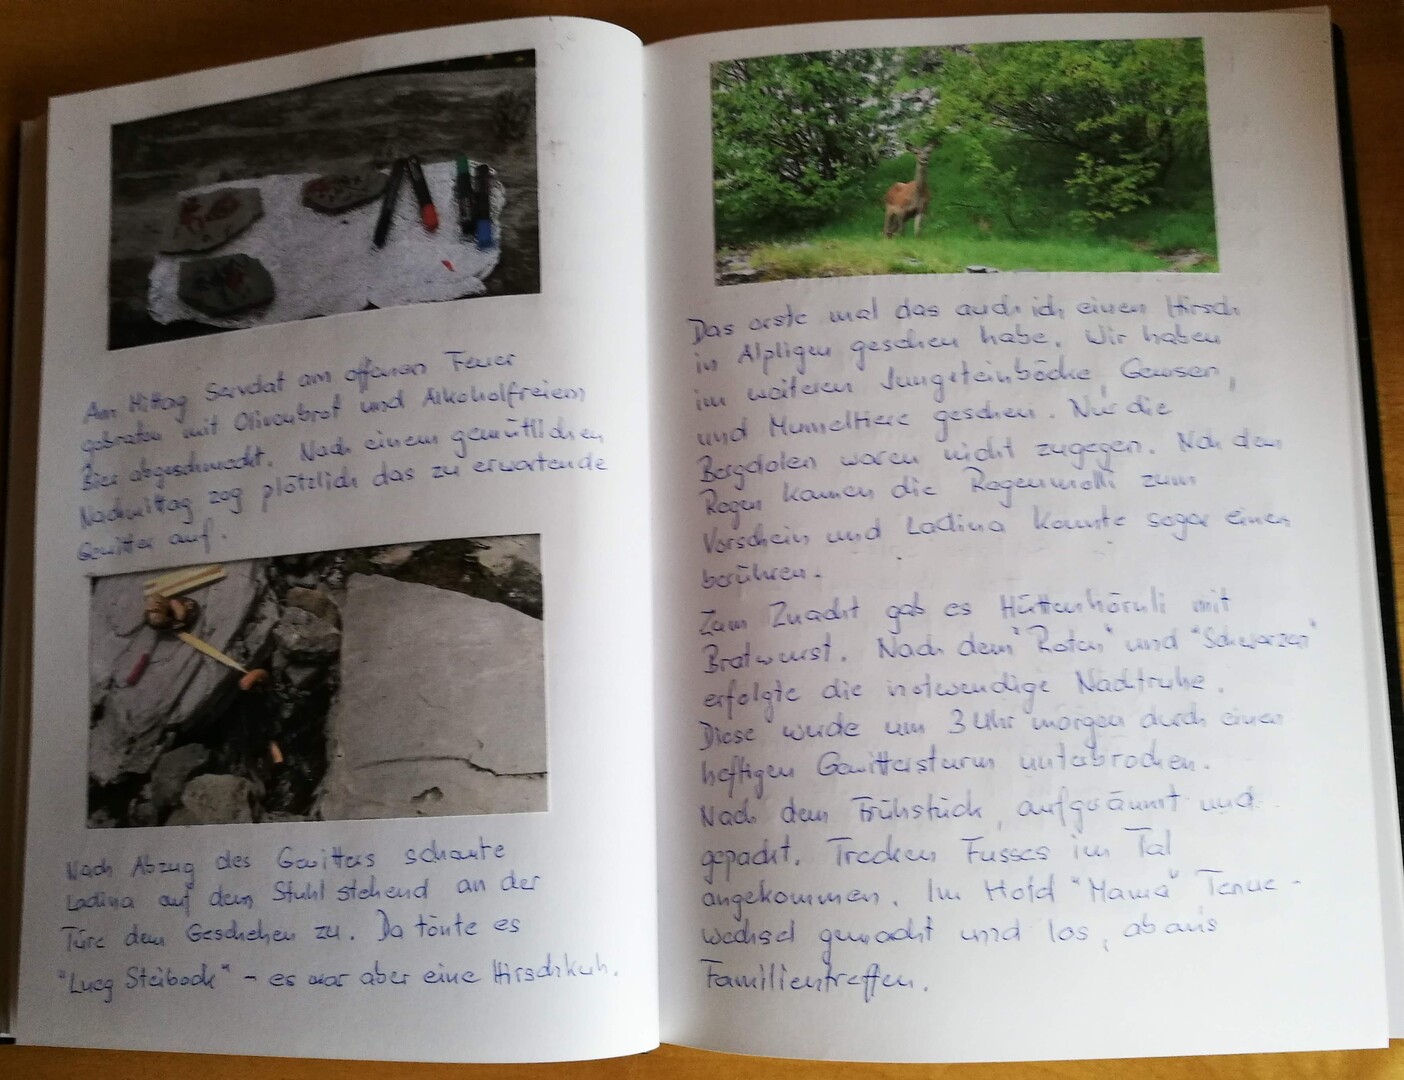 Am Mittag Servelat am offenen Feuer
gebraten mit Olivenbrot und Alkoholfreiem
Bier abgeschmeckt. Nach einem gemütlichen
Nachmittag zog plötzlich das zu erwartende
Gewitter auf.
Nach Abzug des Gewitters schaute
Ladina auf dem Stuhl stehend an der
Türe dem Geschehen zu. Da tönte es
"Lueg Steibock" - es war aber eine Hirschkuh.
Das erste mal das auch ich einen Hirsch
in Alpligen gesehen habe. Wir haben
im weiteren Jungsteinböcke, Gemsen,
und Murmeltiere gesehen. Nur die
Bergdolen waren nicht zugegen. Nach dem
Regen kamen die Regenmolli zum
Vorschein und Ladina konnte sogar einen
berühren.
Zum Znacht gab es Hüttenhörnli mit
Bratwurst. Nach dem "Roten" und "Schwarzen"
erfolgte die notwendige Nachtruhe.
Diese wurde um 3 Uhr morgen durch einen
heftigen Gewittersturm unterbrochen.
Nach dem Frühstück, aufgeräumt und
gepackt. Trocken Fusses im Tal
angekommen. Im Hotel "Mama" Tenue-
wechsel gemacht und los, ab ans
Familientreffen.